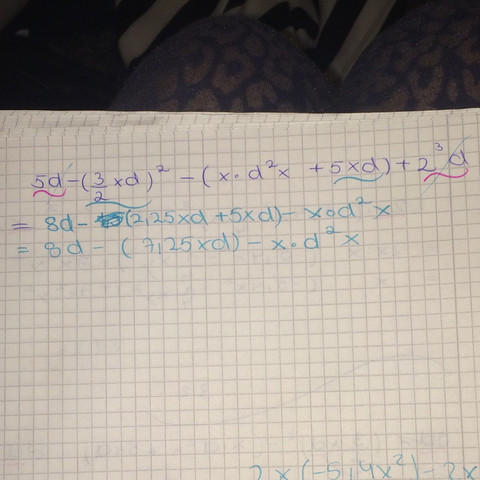 5d-(3/2 xd)² - (x•d²x +5xd)+2³d
= 8d- (2,25xd +5xd)- x•d²x
= 8d - ( 7,25xd) - x•d²x
2x(-5,4x²)-2x